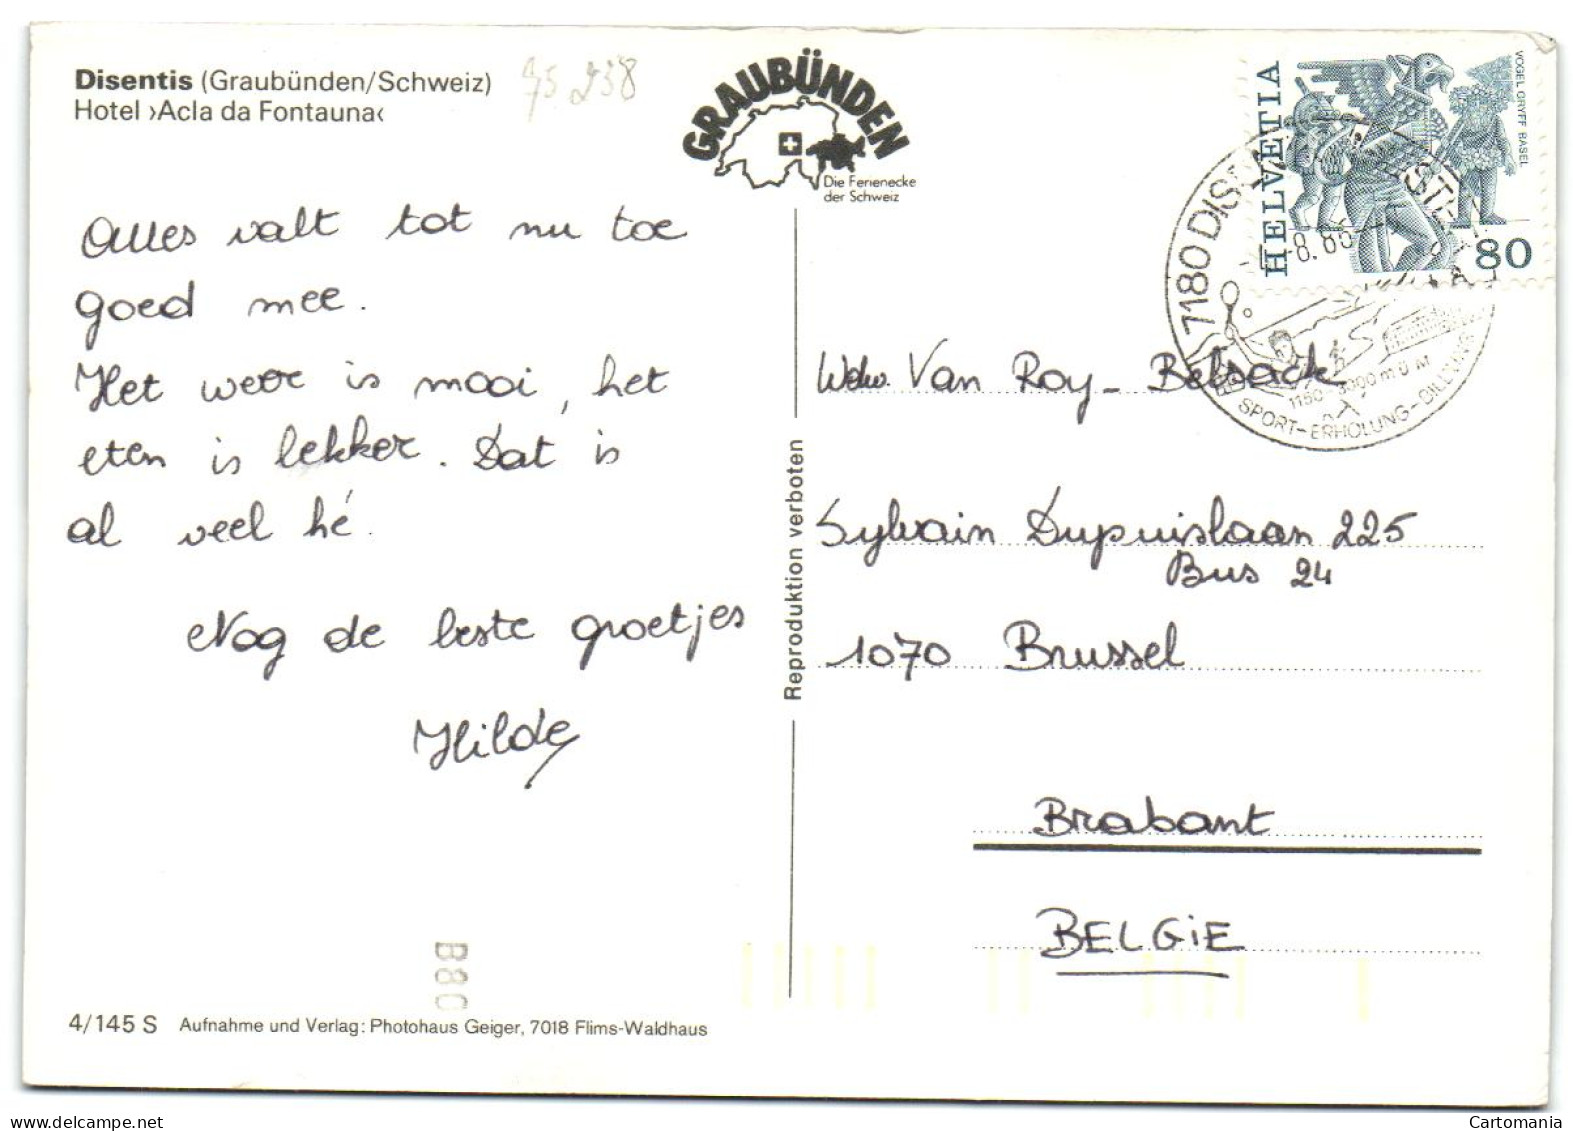 Disentis (Graubünden/Schweiz)
Hotel ›Acla da Fontauna‹
75 238
GRAUBÜNDEN
Die Ferienecke
der Schweiz
HELVETIA
VOGEL GRYFF BASEL
80
7180 DISENTIS
8.86
1150-3000 m ü M
SPORT-ERHOLUNG-BILDUNG
Alles valt tot nu toe
goed mee.
Het weer is mooi, het
eten is lekker. Dat is
al veel hé.
Nog de beste groetjes
Hilde
Reproduktion verboten
Wdw. Van Roy - Belsack
Sylvain Dupuislaan 225
Bus 24
1070 Brussel
Brabant
BELGIE
B80
4/145 S Aufnahme und Verlag: Photohaus Geiger, 7018 Flims-Waldhaus
Cartomania